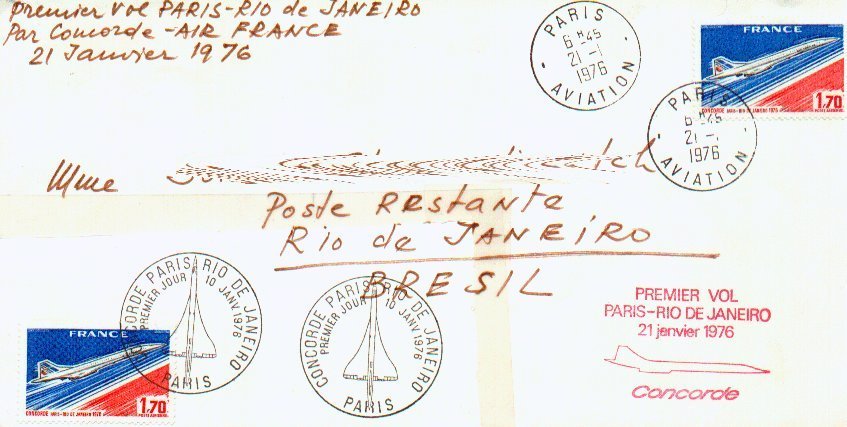 Premier Vol PARIS-RIO de JANEIRO
Par Concorde - AIR FRANCE
21 Janvier 1976
PARIS
6 H 45
21 -1
1976
AVIATION
FRANCE
1,70
CONCORDE PARIS-RIO DE JANEIRO 1976
POSTE AERIENNE
PARIS
6 H 45
21 -1
1976
AVIATION
Mme
Poste Restante
Rio de JANEIRO
BRESIL
CONCORDE PARIS RIO DE JANEIRO
PREMIER JOUR 10 JANV. 1976
PARIS
CONCORDE PARIS RIO DE JANEIRO
PREMIER JOUR 10 JANV. 1976
PARIS
PREMIER VOL
PARIS-RIO DE JANEIRO
21 janvier 1976
Concorde
FRANCE
1,70
CONCORDE PARIS-RIO DE JANEIRO 1976
POSTE AERIENNE